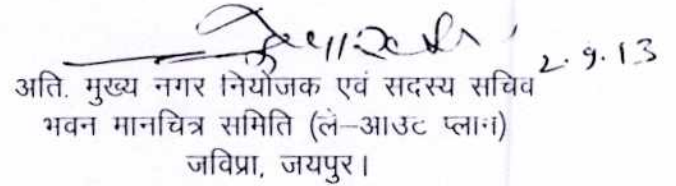 2.9.13
अति. मुख्य नगर नियोजक एवं सदस्य सचिव
भवन मानचित्र समिति (ले-आउट प्लान)
जविप्रा, जयपुर।